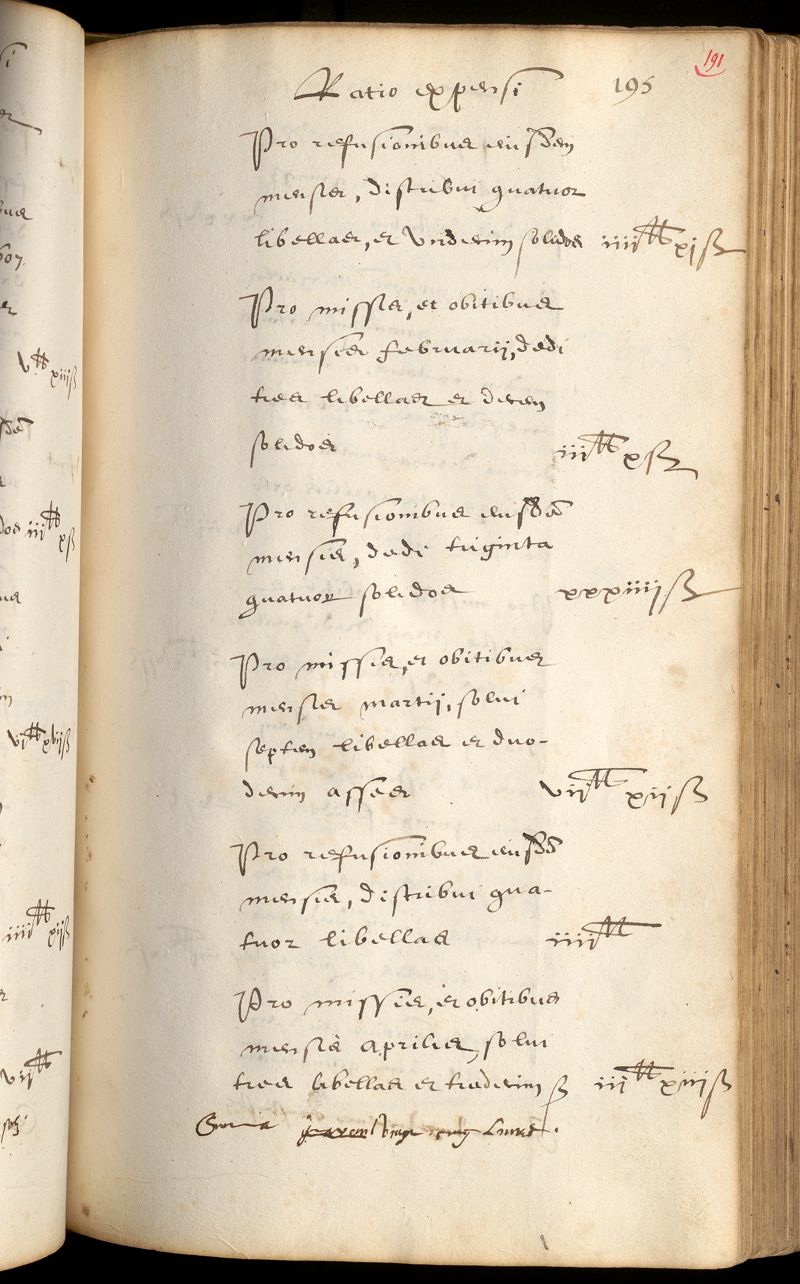 Ratio expensi 195
191
Pro refusionibus eiusdem
mensis, distribui quatuor
libellas, et undecim solidos iiii ₶ xj ß
Pro missis, et obitibus
mensis februarij, dedi
tres libellas et decem
solidos iii ₶ x ß
Pro refusionibus eiusdē
mensis, dedi triginta
quatuor solidos xxxiiij ß
Pro missis, et obitibus
mensis martij, solui
septem libellas et duo-
decim asses vii ₶ xij ß
Pro refusionibus eiusdē
mensis, distribui qua-
tuor libellas iiii ₶
Pro missis, et obitibus
mensis Aprilis, solui
tres libellas et tredecim ß iii ₶ xiij ß
Summa